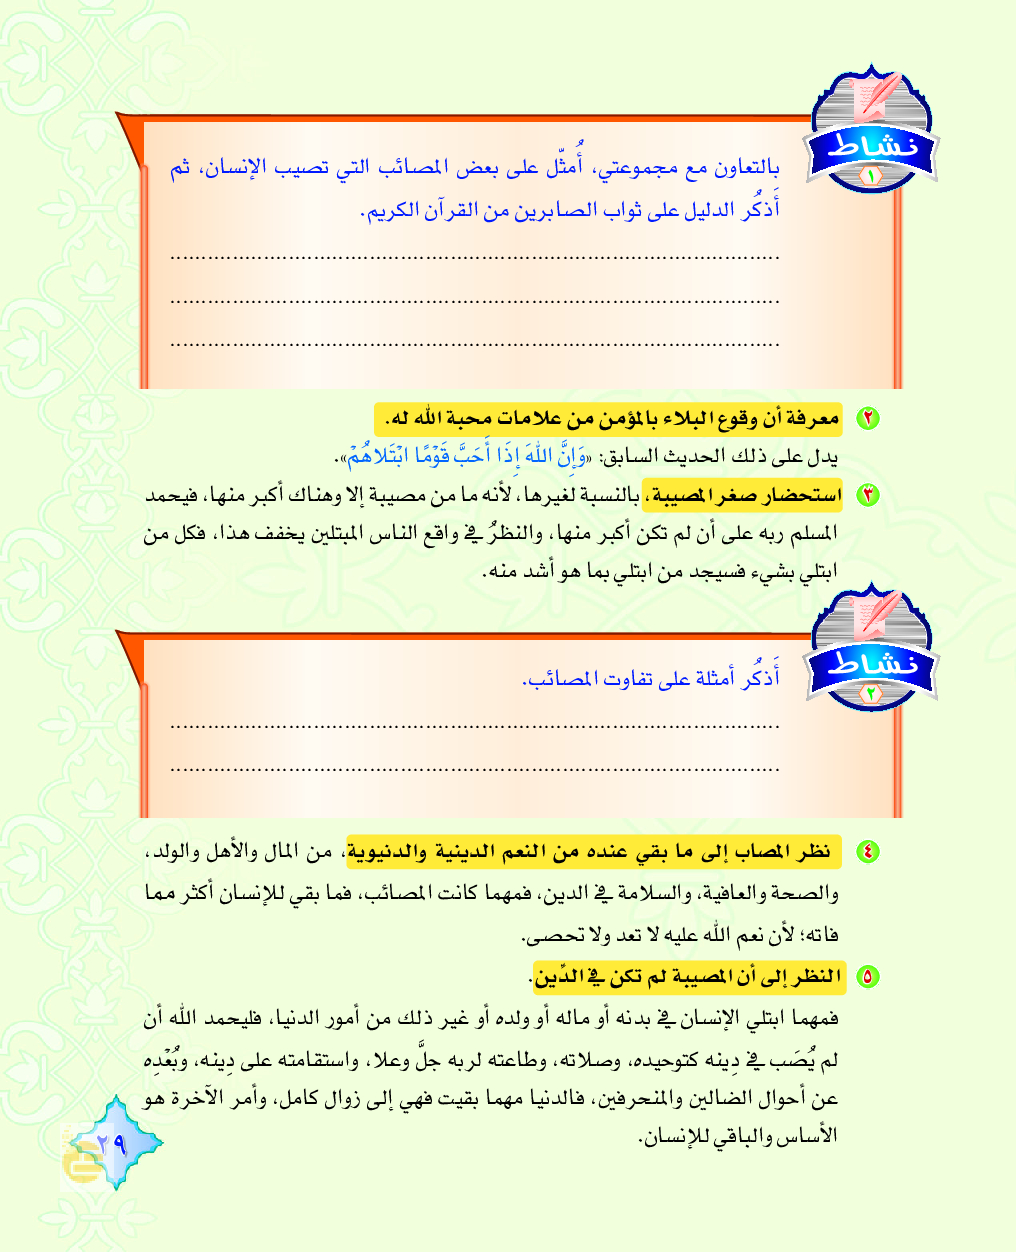 نشاط
١
بالتعاون مع مجموعتي، أُمثّل على بعض المصائب التي تصيب الإنسان، ثم
أَذكُر الدليل على ثواب الصابرين من القرآن الكريم.
................................................................................
................................................................................
................................................................................
٢ معرفة أن وقوع البلاء بالمؤمن من علامات محبة الله له.
يدل على ذلك الحديث السابق: «وَإِنَّ اللهَ إِذَا أَحَبَّ قَوْمًا ابْتَلَاهُمْ».
٣ استحضار صغر المصيبة، بالنسبة لغيرها، لأنه ما من مصيبة إلا وهناك أكبر منها، فيحمد
المسلم ربه على أن لم تكن أكبر منها، والنظرُ في واقع الناس المبتلين يخفف هذا، فكل من
ابتلي بشيء فسيجد من ابتلي بما هو أشد منه.
نشاط
٢
أَذكُر أمثلة على تفاوت المصائب.
................................................................................
................................................................................
٤ نظر المصاب إلى ما بقي عنده من النعم الدينية والدنيوية، من المال والأهل والولد،
والصحة والعافية، والسلامة في الدين، فمهما كانت المصائب، فما بقي للإنسان أكثر مما
فاته؛ لأن نعم الله عليه لا تعد ولا تحصى.
٥ النظر إلى أن المصيبة لم تكن في الدِّين.
فمهما ابتلي الإنسان في بدنه أو ماله أو ولده أو غير ذلك من أمور الدنيا، فليحمد الله أن
لم يُصَب في دِينه كتوحيده، وصلاته، وطاعته لربه جلَّ وعلا، واستقامته على دِينه، وبُعْدِه
عن أحوال الضالين والمنحرفين، فالدنيا مهما بقيت فهي إلى زوال كامل، وأمر الآخرة هو
الأساس والباقي للإنسان.
٢٩